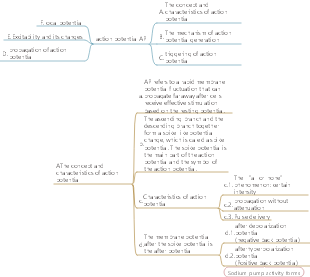 F. local potential
E. Excitability and its changes
D. propagation of action
potential
action potential AP
The concept and
A. characteristics of action
potential
B. The mechanism of action
potential generation
C. triggering of action
potential
A The concept and
characteristics of action
potential
AP refers to a rapid membrane
potential fluctuation that can
a. propagate far away after cells
receive effective stimulation
based on the resting potential.
The ascending branch and the
descending branch together
form a spike like potential
change, which is called a spike
potential. The spike potential is
the main part of the action
potential and the symbol of
the action potential.
c. Characteristics of action
potential
The "all or none"
c.1. phenomenon: certain
intensity
c.2. propagation without
attenuation
c.3. Pulse delivery
The membrane potential
d. after the spike potential is
the after potential
after depolarization
d.1. potential
(negative back potential)
after hyperpolarization
d.2. potential
(Positive back potential)
Sodium pump activity forms